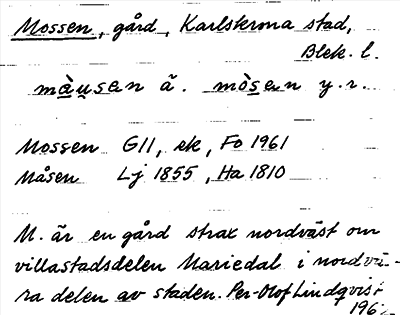 Mossen, gård, Karlskrona stad,
Blek. l.
màusen ä. mòsen y.r.
Mossen G11, ek, Fo 1961
Måsen Lj 1855, Ha 1810
M. är en gård strax nordväst om
villastadsdelen Mariedal i nordväs-
ra delen av staden. Per-Olof Lindqvist